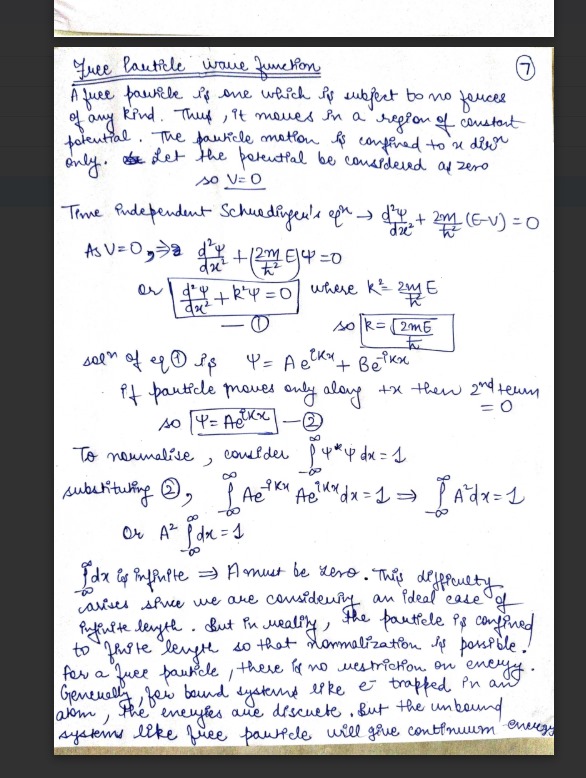 Free Particle wave function
⑦
A free particle is one which is subject to no forces
of any kind. Thus, it moves in a region of constant
potential. The particle motion is confined to x dirⁿ
only. Let the potential be considered as zero
so V=0
Time independent Schrodinger's eqⁿ → d²ψ/dx² + 2m/ħ² (E-V) = 0
As V=0, ⇒ d²ψ/dx² + (2m/ħ² E)ψ = 0
or d²ψ/dx² + k²ψ = 0 where k² = 2mE/ħ²
— ① so k = √2mE/ħ
solⁿ of eq ① is ψ = Ae^{ikx} + Be^{-ikx}
if particle moves only along +x then 2nd term
= 0
so ψ = Ae^{ikx} — ②
To normalise, consider ∫_{-∞}^{∞} ψ*ψ dx = 1
substituting ②, ∫_{-∞}^{∞} Ae^{-ikx} Ae^{ikx} dx = 1 ⇒ ∫_{-∞}^{∞} A²dx = 1
Or A² ∫_{-∞}^{∞} dx = 1
∫_{-∞}^{∞} dx is infinite ⇒ A must be zero. This difficulty
arises since we are considering an ideal case of
infinite length. But in reality, the particle is confined
to finite length so that normalization is possible.
For a free particle, there is no restriction on energy.
Generally, for bound systems like e⁻ trapped in an
atom, the energies are discrete. But the unbound
systems like free particle will give continuum energy